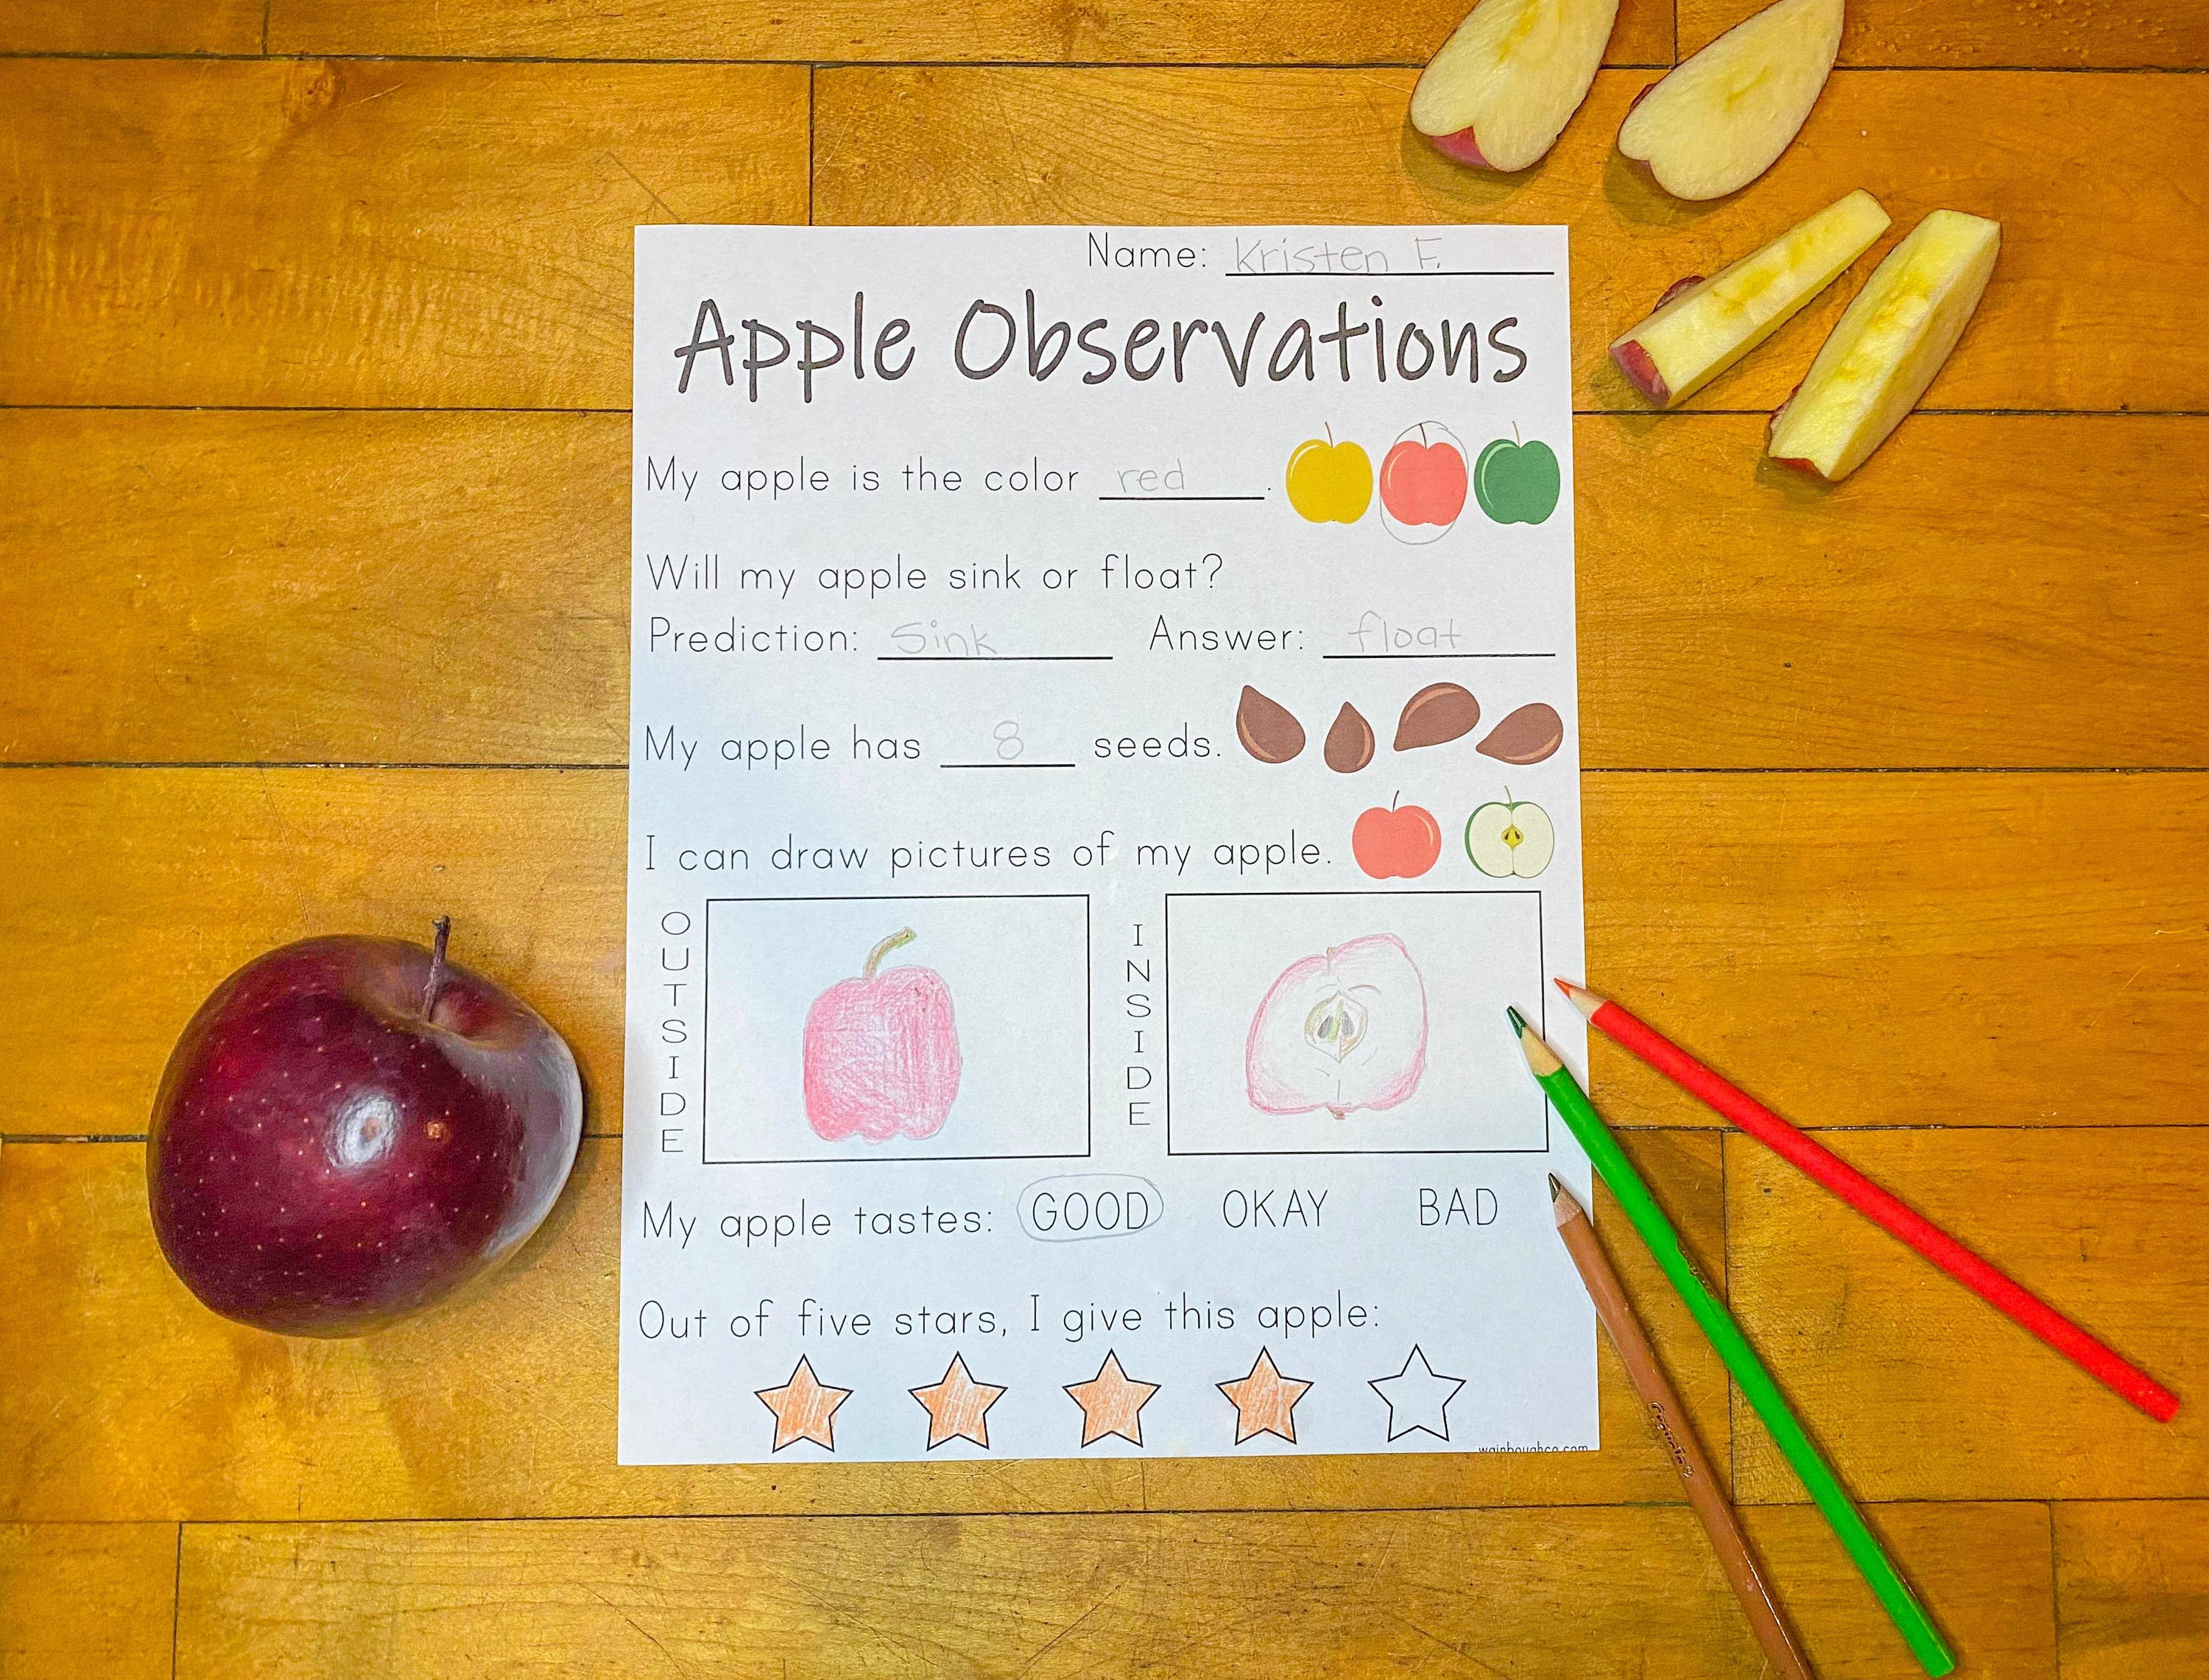 Name: Kristen F.
Apple Observations
My apple is the color red.
Will my apple sink or float?
Prediction: Sink Answer: float
My apple has 8 seeds.
I can draw pictures of my apple.
OUTSIDE
INSIDE
My apple tastes: GOOD OKAY BAD
Out of five stars, I give this apple:
wainboughco.com
Crayola